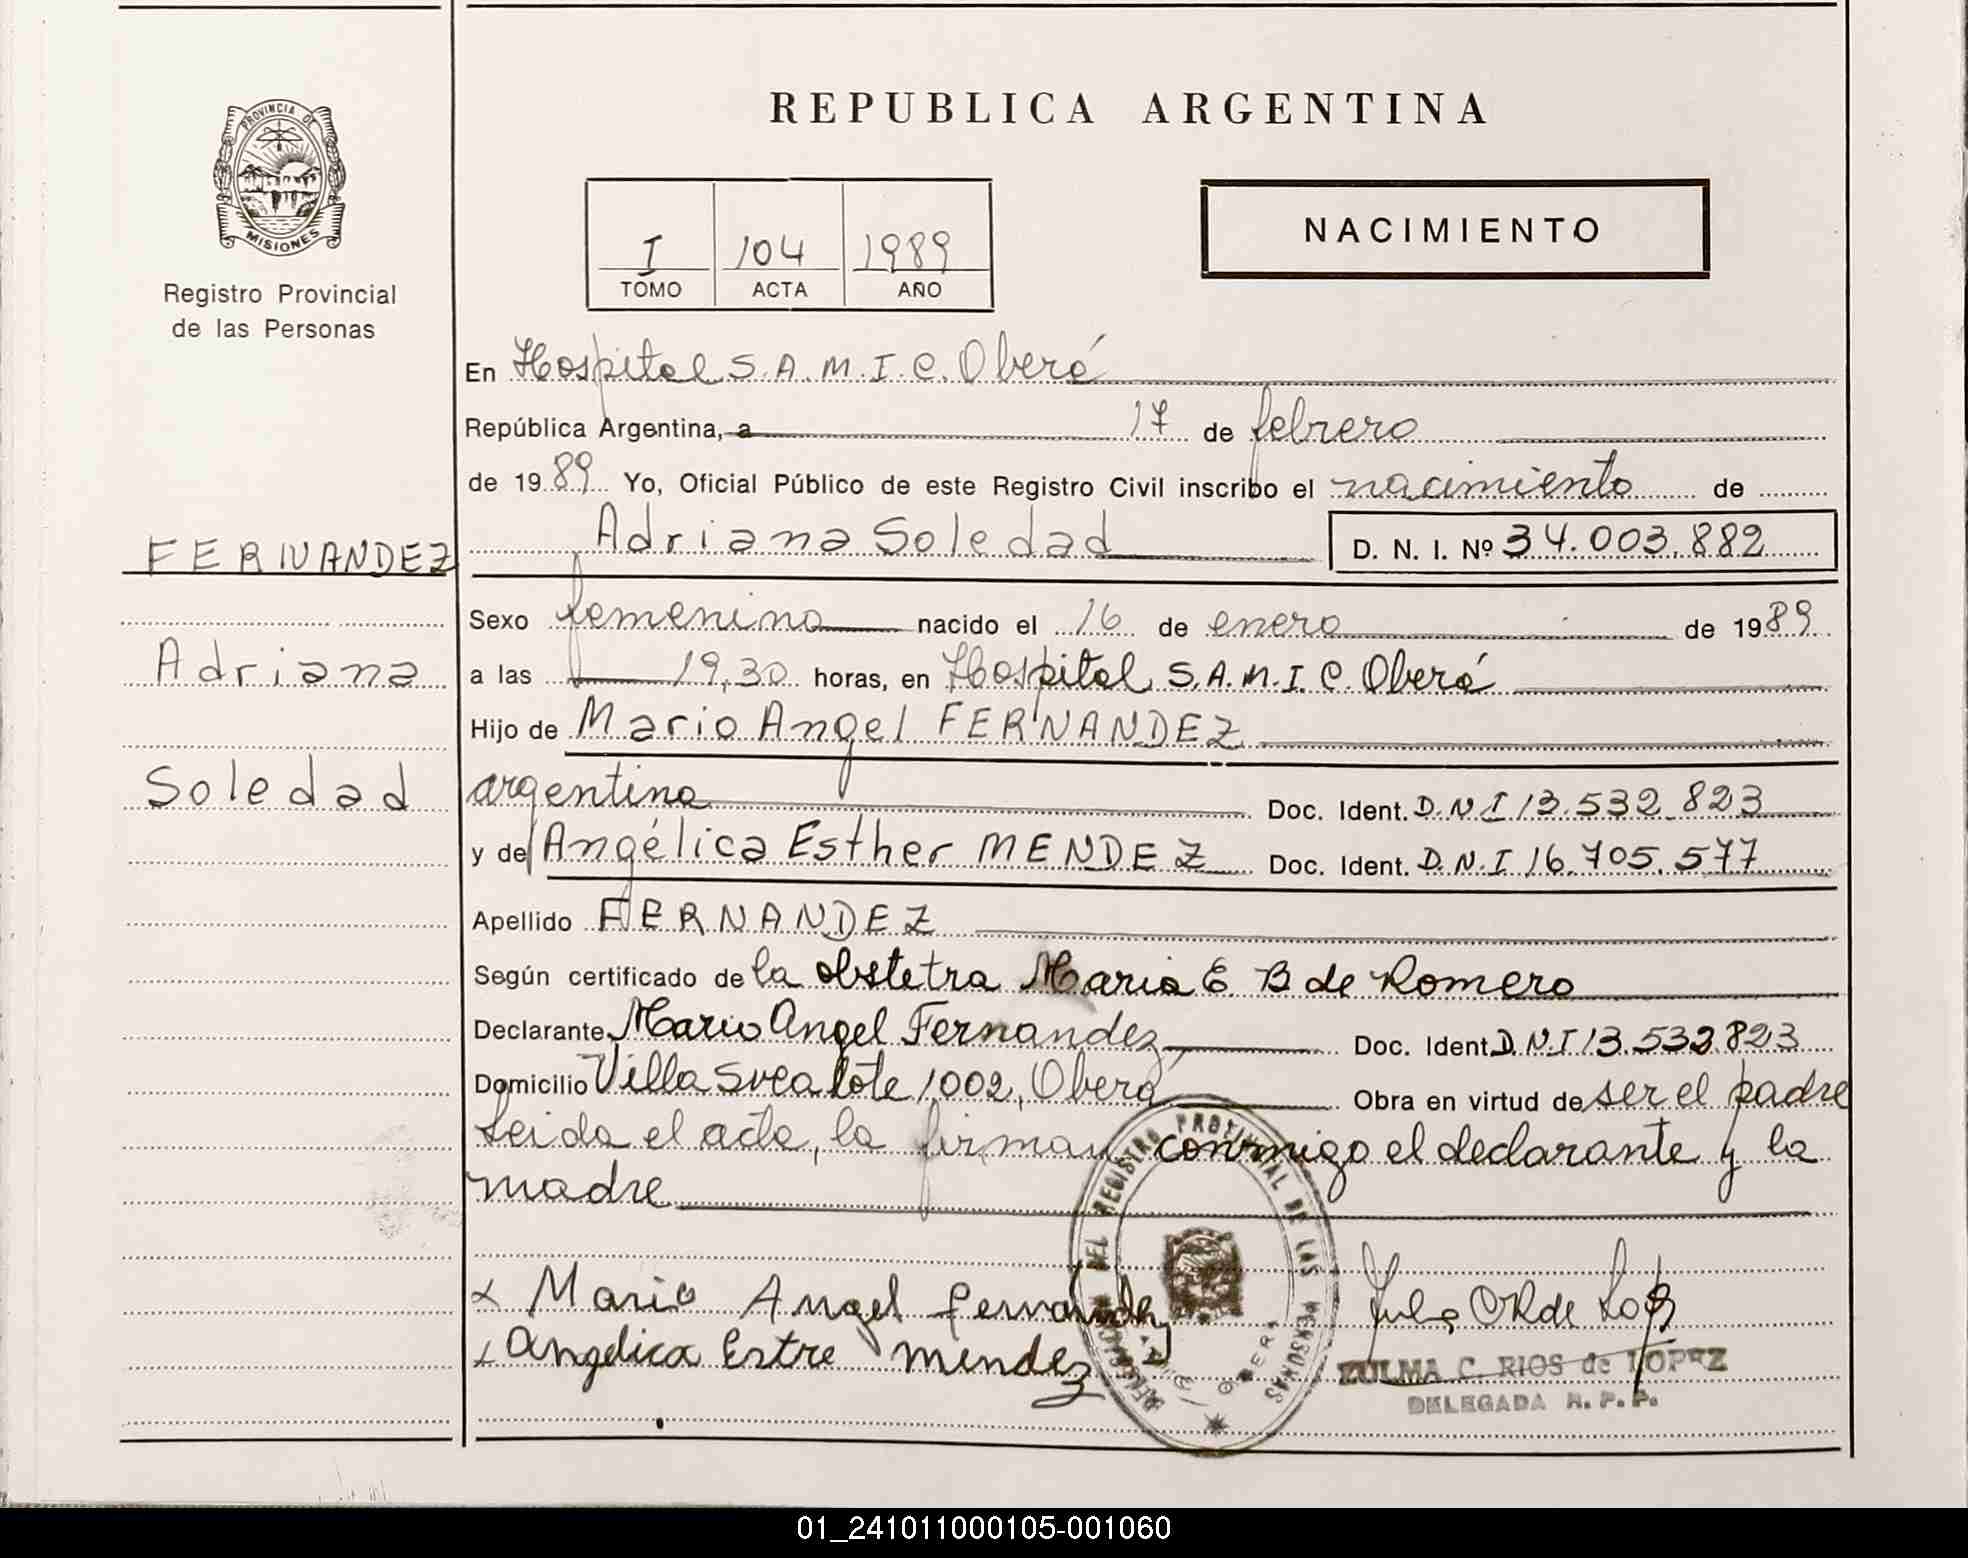 PROVINCIA DE
MISIONES
Registro Provincial
de las Personas
FERNANDEZ
Adriana
Soledad
REPUBLICA ARGENTINA
I 104 1989
TOMO ACTA AÑO
NACIMIENTO
En Hospital S.A.M.I.C. Oberá
República Argentina, a 17 de febrero
de 1989 Yo, Oficial Público de este Registro Civil inscribo el nacimiento de
Adriana Soledad D. N. I. Nº 34.003.882
Sexo femenino nacido el 16 de enero de 1989
a las 19,30 horas, en Hospital S.A.M.I.C. Oberá
Hijo de Mario Angel FERNANDEZ
argentina Doc. Ident. D.N.I 13.532.823
y de Angélica Esther MENDEZ Doc. Ident. D.N.I 16.705.577
Apellido FERNANDEZ
Según certificado de la obstetra Maria E. B de Romero
Declarante Mario Angel Fernandez Doc. Ident. D.N.I 13.532.823
Domicilio Villa Svea lote 1002, Oberá Obra en virtud de ser el padre
Leida el acta, la firman conmigo el declarante y la
madre
x Mario Angel Fernandez
x Angelica Estre mendez
DELEGACION DEL REGISTRO PROVINCIAL DE LAS PERSONAS
OBERA
ZULMA C. RIOS de LOPEZ
DELEGADA R. P. P.
01_241011000105-001060